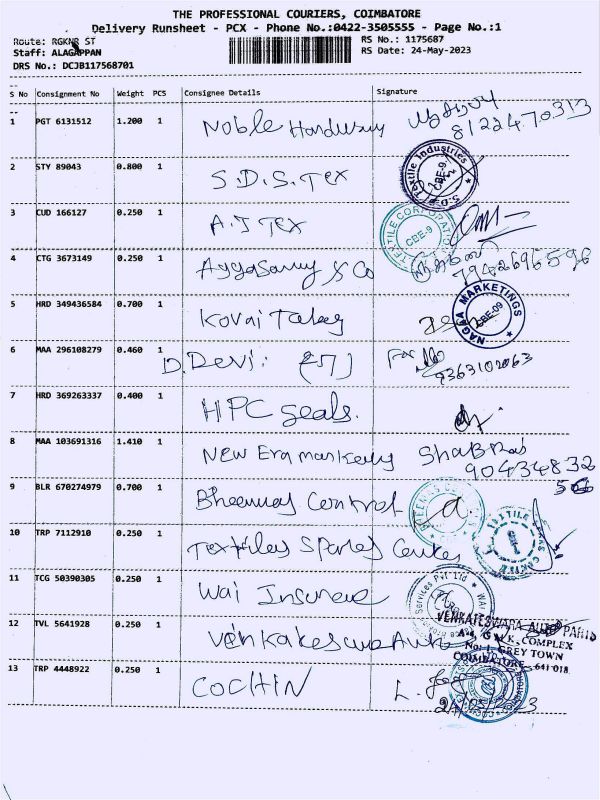 THE PROFESSIONAL COURIERS, COIMBATORE
Delivery Runsheet - PCX - Phone No.:0422-3505555 - Page No.:1
Route: RGKNR ST
RS No.: 1175687
Staff: ALAGAPPAN
RS Date: 24-May-2023
DRS No.: DCJB117568701
S No Consignment No Weight PCS Consignee Details Signature
1 PGT 6131512 1.200 1 Noble Hardway 8122470313
2 STY 89043 0.800 1 S.D.S. Tex
S.D.S Textile Industries CBE-9
3 CUD 166127 0.250 1 A.J TEX
TEXTILE CORPORATION CBE-9
4 CTG 3673149 0.250 1 Ayyasamy & Co 7942696596
5 HRD 349436584 0.700 1 Kovai
NAGAA MARKETINGS CBE-09
6 MAA 296108279 0.460 1 D. Devi: 9363102063
7 HRD 369263337 0.400 1 HPC Seals.
8 MAA 103691316 1.410 1 New Era ShaBRas 90434832
9 BLR 670274979 0.700 1 Control
10 TRP 7112910 0.250 1 Textiles Spares Centre
11 TCG 50390305 0.250 1 Wai Insurance
Services Pvt Ltd
12 TVL 5641928 0.250 1 Venkakeswa Auto
VENKATESWARA AUTO PARTS
A-4, G.W.K. COMPLEX
No: 1, GREY TOWN
COIMBATORE - 641 018.
13 TRP 4448922 0.250 1 COCHIN